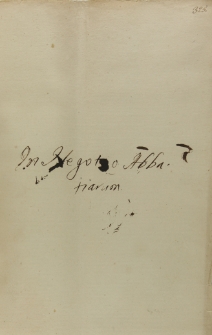 In Negotio Abba-
tiarum